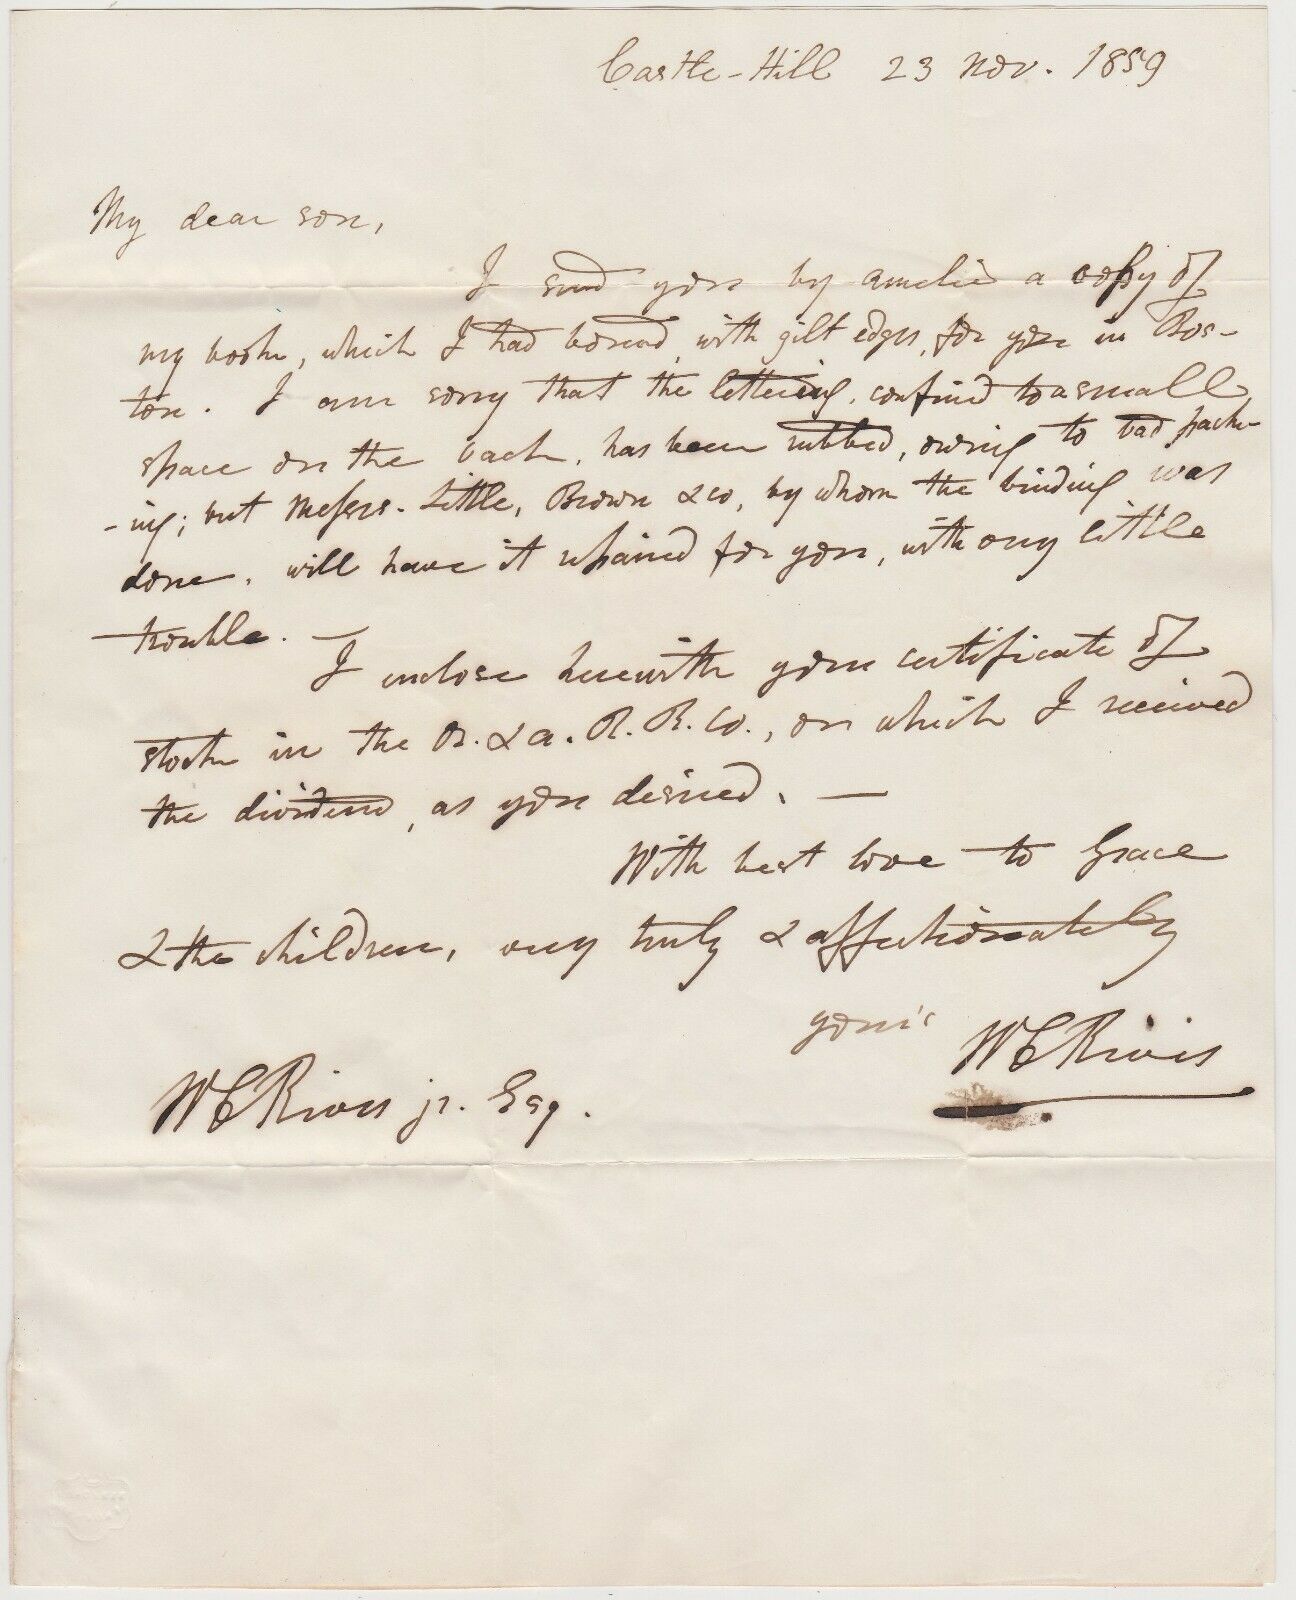 Castle-Hill 23 Nov. 1859
My dear son,
I send you by Amelie a copy of
my book, which I had bound, with gilt edges, for you in Bos-
ton. I am sorry that the lettering, confined to a small
space on the back, has been rubbed, owing to bad pack-
-ing; but Messrs. Little, Brown & Co, by whom the binding was
done, will have it repaired for you, with very little
trouble. —
I inclose herewith your certificate of
stock in the O. & A. R. R. Co., on which I received
the dividend, as you desired. —
With best love to Grace
& the children, very truly & affectionately
yours W C Rives
W C Rives jr. Esq.